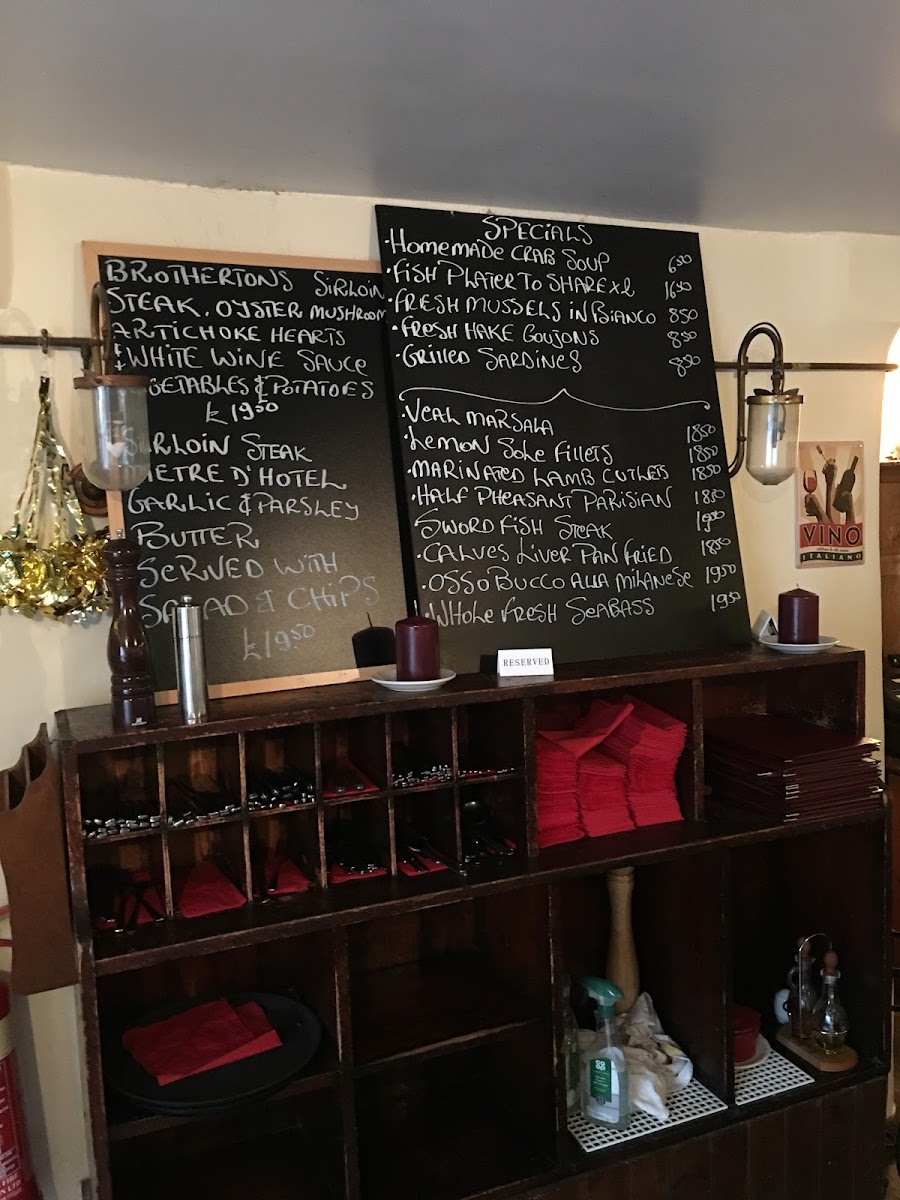 BROTHERTONS SIRLOIN
STEAK, OYSTER MUSHROOM
ARTICHOKE HEARTS
& WHITE WINE SAUCE
VEGETABLES & POTATOES
£19.50
SIRLOIN STEAK
METRE D'HOTEL
GARLIC & PARSLEY
BUTTER
SERVED WITH
SALAD & CHIPS
£19.50
SPECIALS
·HOMEMADE CRAB SOUP 6.50
·FISH PLATER TO SHARE x2 16.50
·FRESH MUSSELS IN BIANCO 850
·FRESH HAKE GOUJONS 850
·GRILLED SARDINES 850
·VEAL MARSALA 1850
·LEMON SOLE FILLETS 1850
·MARINATED LAMB CUTLETS 1850
·HALF PHEASANT PARISIAN 1850
SWORD FISH STEAK 1900
·CALVES LIVER PAN FRIED 1850
·OSSO BUCCO ALLA MILANESE 1950
·WHOLE FRESH SEABASS 1950
RESERVED
VINO
ITALIANO